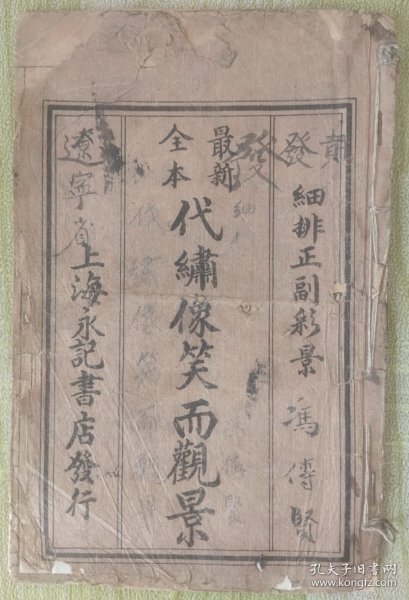 細排正副彩景
馮傅賢
發
發
最新
全本
代繡像笑而觀景
遼寧省
上海永記書店發行
孔夫子旧书网
www.kongfz.com